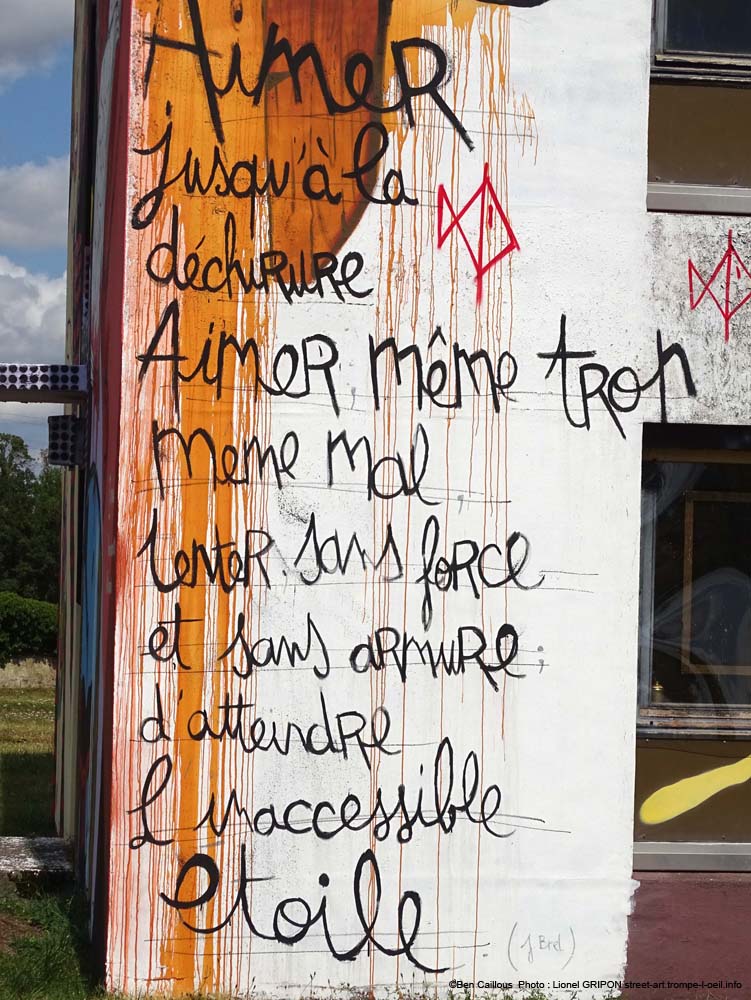 Aimer
jusqu'à la
déchirure
Aimer, même trop
meme mal,
Tenter, sans force
et sans armure,
d'atteindre
L'inaccessible
etoile.
(J Brel)
©Ben Caillous Photo : Lionel GRIPON street-art.trompe-l-oeil.info